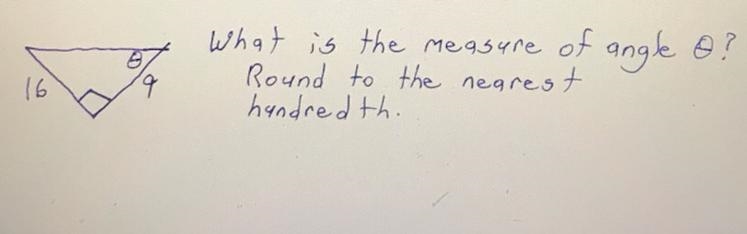 What is the measure of angle θ?
Round to the nearest
hundredth.
θ
16
9